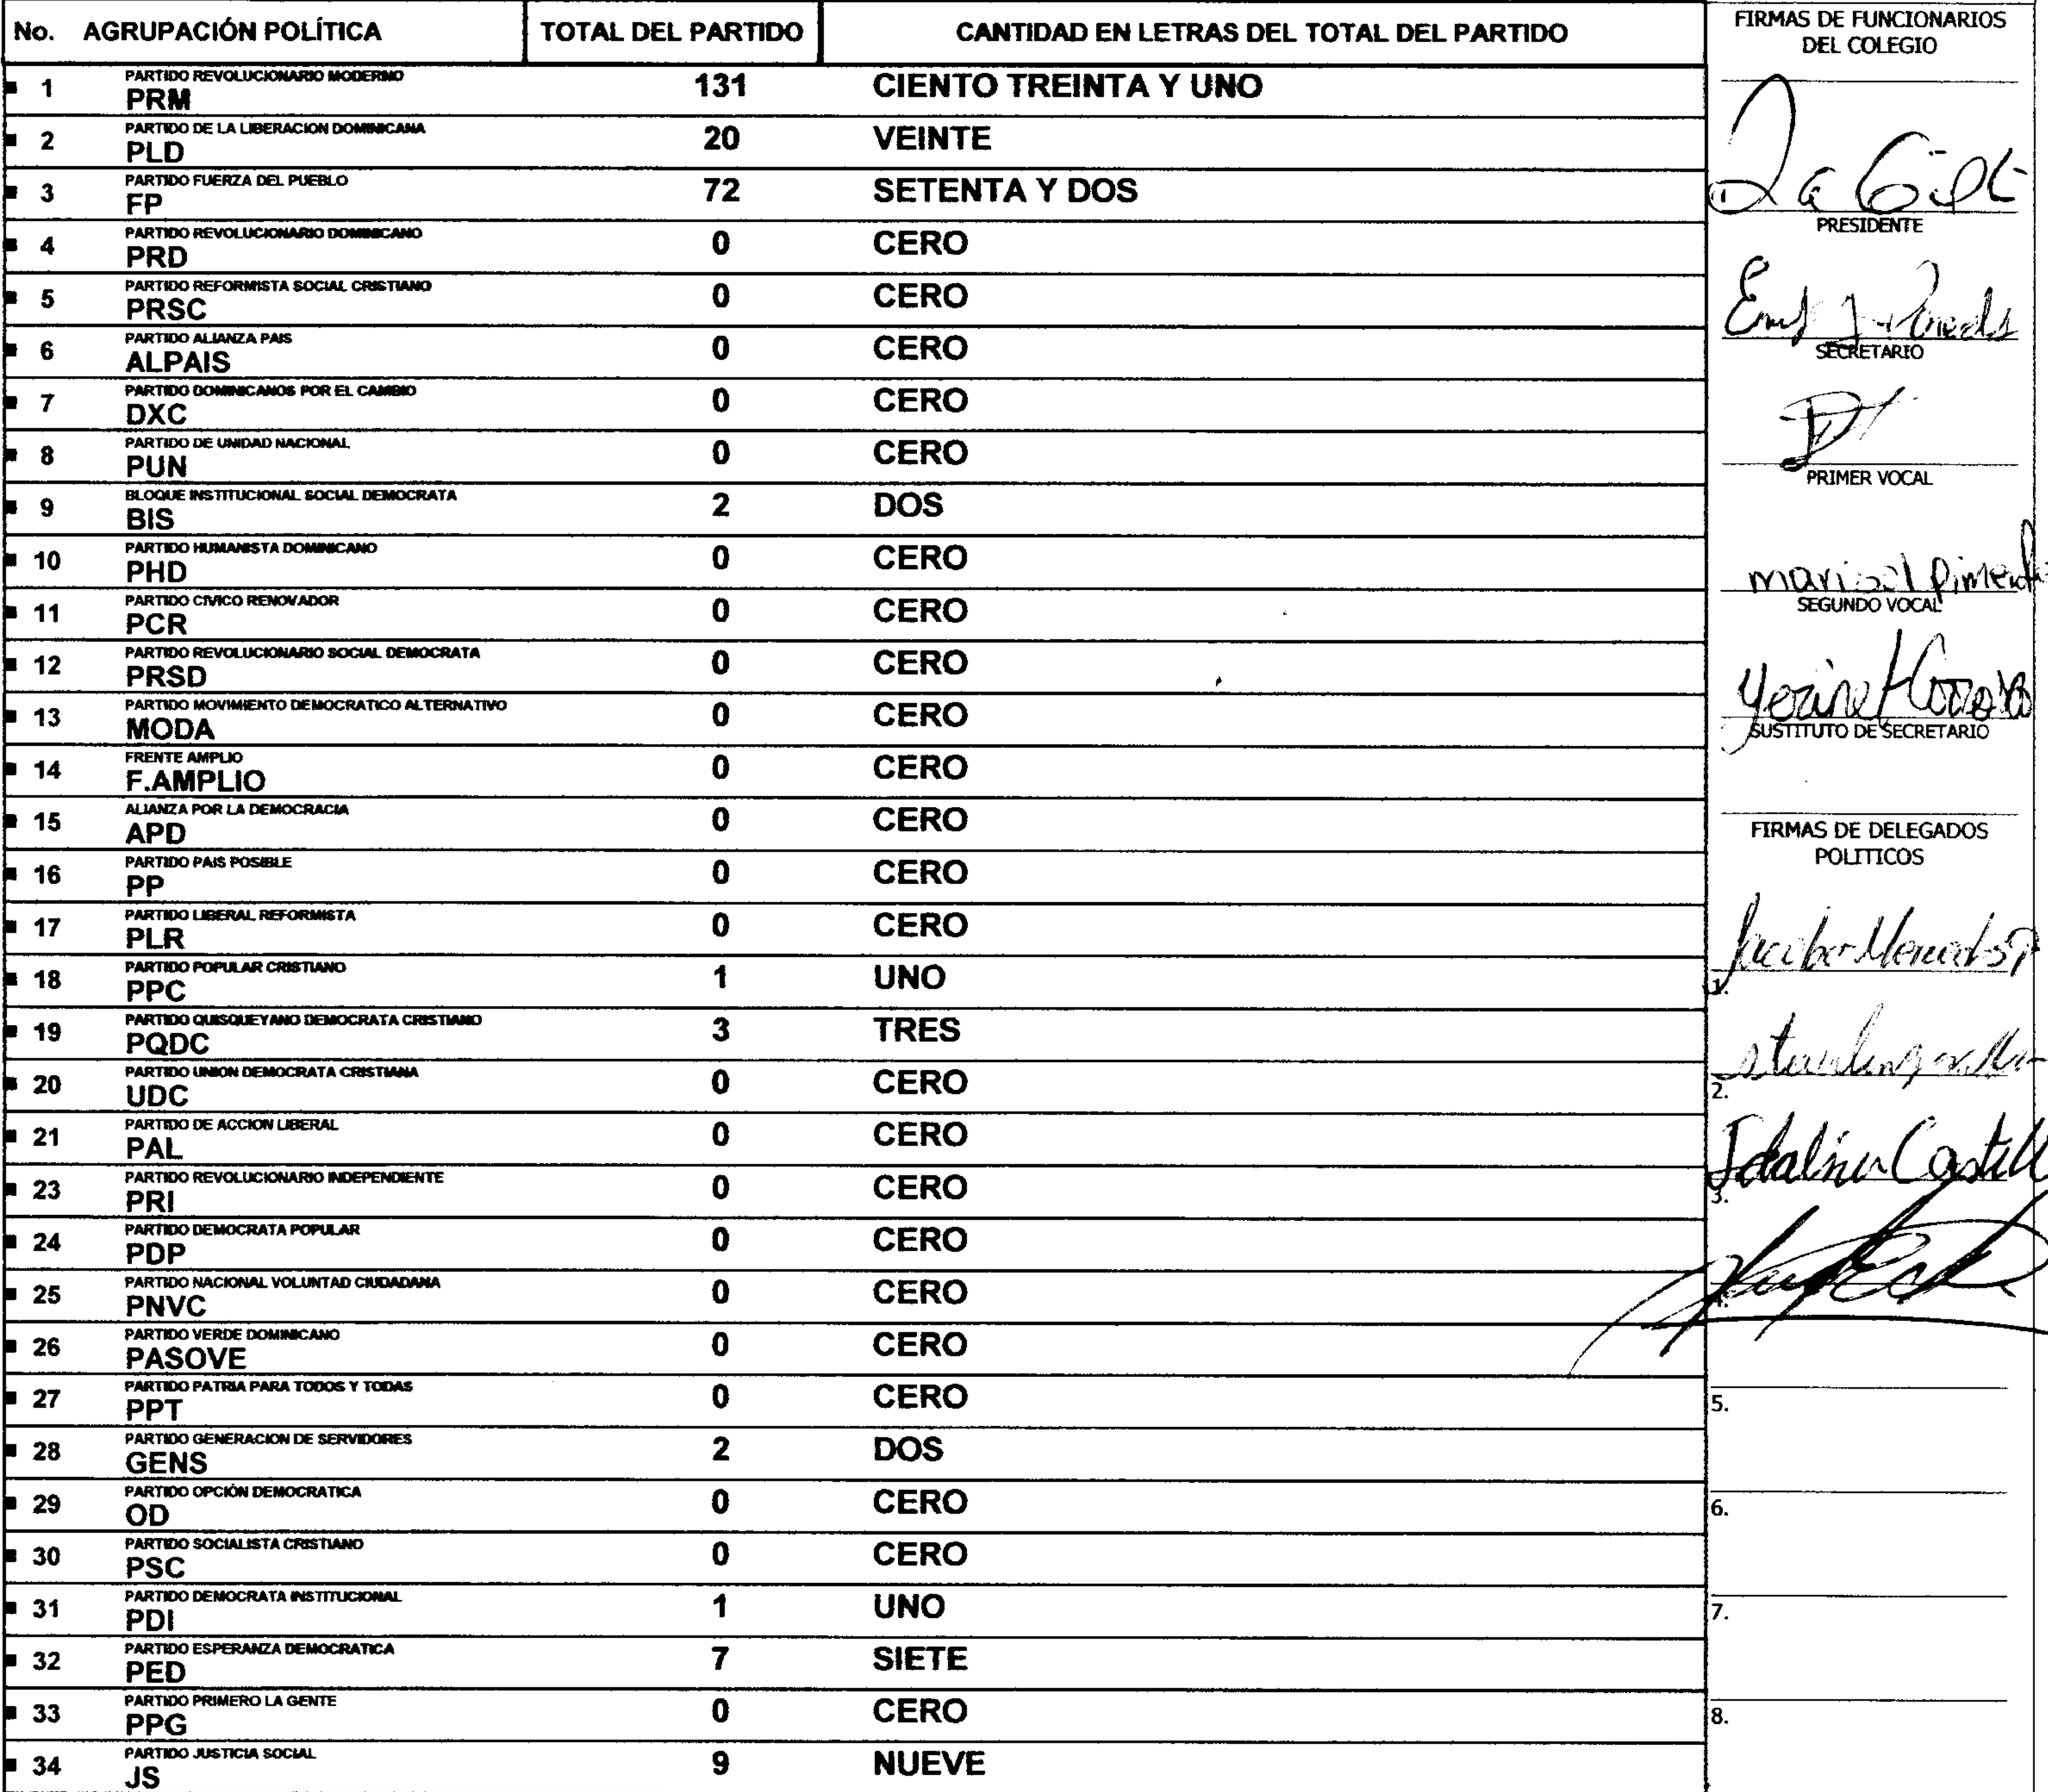 No. AGRUPACIÓN POLÍTICA TOTAL DEL PARTIDO CANTIDAD EN LETRAS DEL TOTAL DEL PARTIDO
1 PARTIDO REVOLUCIONARIO MODERNO
PRM 131 CIENTO TREINTA Y UNO
2 PARTIDO DE LA LIBERACION DOMINICANA
PLD 20 VEINTE
3 PARTIDO FUERZA DEL PUEBLO
FP 72 SETENTA Y DOS
4 PARTIDO REVOLUCIONARIO DOMINICANO
PRD 0 CERO
5 PARTIDO REFORMISTA SOCIAL CRISTIANO
PRSC 0 CERO
6 PARTIDO ALIANZA PAIS
ALPAIS 0 CERO
7 PARTIDO DOMINICANOS POR EL CAMBIO
DXC 0 CERO
8 PARTIDO DE UNIDAD NACIONAL
PUN 0 CERO
9 BLOQUE INSTITUCIONAL SOCIAL DEMOCRATA
BIS 2 DOS
10 PARTIDO HUMANISTA DOMINICANO
PHD 0 CERO
11 PARTIDO CIVICO RENOVADOR
PCR 0 CERO
12 PARTIDO REVOLUCIONARIO SOCIAL DEMOCRATA
PRSD 0 CERO
13 PARTIDO MOVIMIENTO DEMOCRATICO ALTERNATIVO
MODA 0 CERO
14 FRENTE AMPLIO
F.AMPLIO 0 CERO
15 ALIANZA POR LA DEMOCRACIA
APD 0 CERO
16 PARTIDO PAIS POSIBLE
PP 0 CERO
17 PARTIDO LIBERAL REFORMISTA
PLR 0 CERO
18 PARTIDO POPULAR CRISTIANO
PPC 1 UNO
19 PARTIDO QUISQUEYANO DEMOCRATA CRISTIANO
PQDC 3 TRES
20 PARTIDO UNION DEMOCRATA CRISTIANA
UDC 0 CERO
21 PARTIDO DE ACCION LIBERAL
PAL 0 CERO
23 PARTIDO REVOLUCIONARIO INDEPENDIENTE
PRI 0 CERO
24 PARTIDO DEMOCRATA POPULAR
PDP 0 CERO
25 PARTIDO NACIONAL VOLUNTAD CIUDADANA
PNVC 0 CERO
26 PARTIDO VERDE DOMINICANO
PASOVE 0 CERO
27 PARTIDO PATRIA PARA TODOS Y TODAS
PPT 0 CERO
28 PARTIDO GENERACION DE SERVIDORES
GENS 2 DOS
29 PARTIDO OPCIÓN DEMOCRATICA
OD 0 CERO
30 PARTIDO SOCIALISTA CRISTIANO
PSC 0 CERO
31 PARTIDO DEMOCRATA INSTITUCIONAL
PDI 1 UNO
32 PARTIDO ESPERANZA DEMOCRATICA
PED 7 SIETE
33 PARTIDO PRIMERO LA GENTE
PPG 0 CERO
34 PARTIDO JUSTICIA SOCIAL
JS 9 NUEVE
FIRMAS DE FUNCIONARIOS
DEL COLEGIO
PRESIDENTE
SECRETARIO
PRIMER VOCAL
marisol
SEGUNDO VOCAL
SUSTITUTO DE SECRETARIO
FIRMAS DE DELEGADOS
POLITICOS
1.
2.
3.
4.
5.
6.
7.
8.